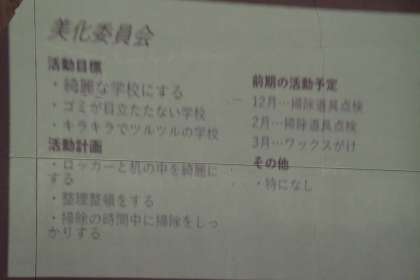 美化委員会
活動目標
・綺麗な学校にする
・ゴミが目立たない学校
・キラキラでツルツルの学校
活動計画
・ロッカーと机の中を綺麗に
する
・整理整頓をする
・掃除の時間中に掃除をしっ
かりする
前期の活動予定
12月…掃除道具点検
2月…掃除道具点検
3月…ワックスがけ
その他
・特になし